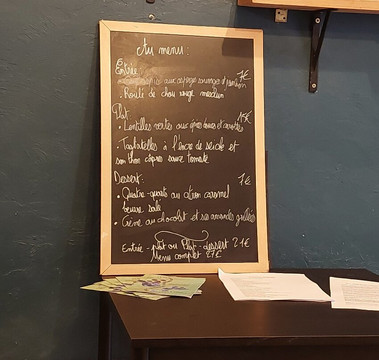 Au menu :
Entrée 7€
aux asperges sauvages
• Roulé de chou rouge
Plat 15€
• Lentilles vertes aux épices
• Tagliatelles à l'encre de seiche et
son thon câpres sauce tomate
Dessert: 7€
• Quatre-quarts au citron caramel
beurre salé
• Crème au chocolat et ses amandes grillées
Entrée-plat ou Plat-dessert 21€
Menu complet 27€